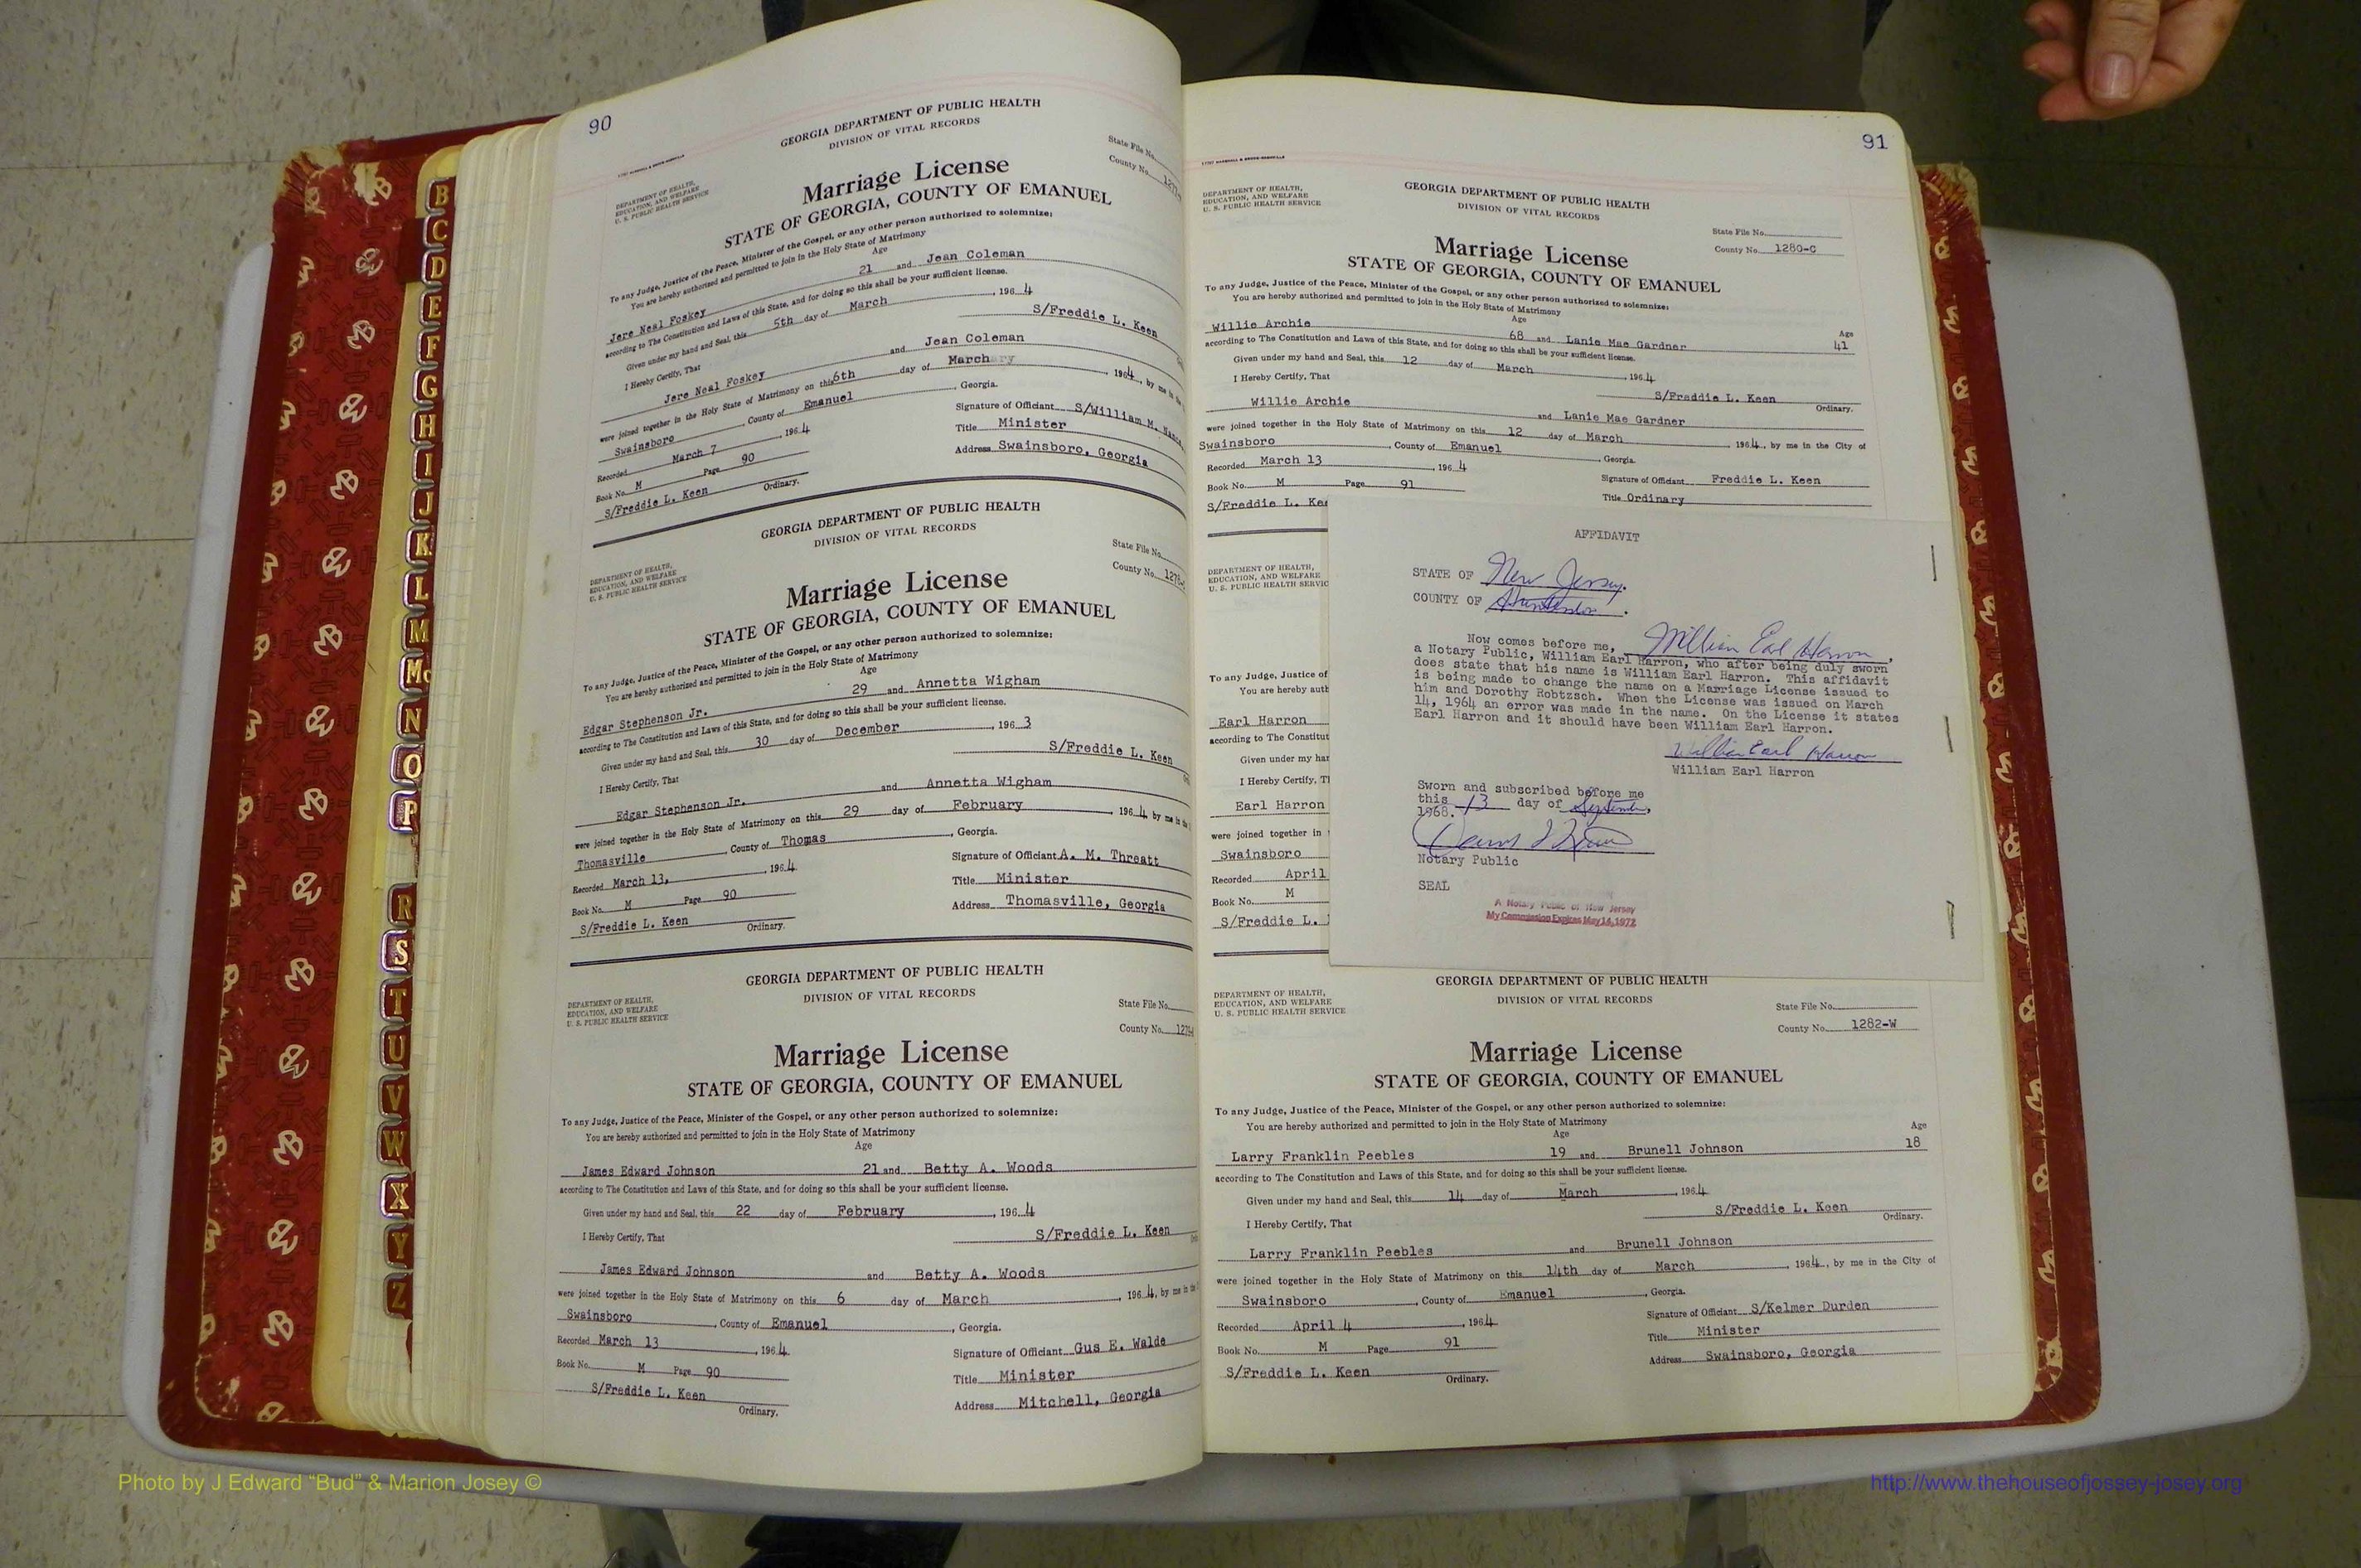 90
GEORGIA DEPARTMENT OF PUBLIC HEALTH
DIVISION OF VITAL RECORDS
DEPARTMENT OF HEALTH,
EDUCATION, AND WELFARE
U. S. PUBLIC HEALTH SERVICE
State File No.
County No.
Marriage License
STATE OF GEORGIA, COUNTY OF EMANUEL
To any Judge, Justice of the Peace, Minister of the Gospel, or any other person authorized to solemnize:
You are hereby authorized and permitted to join in the Holy State of Matrimony
Age
Jere Neal Foskey 21 and Jean Coleman
according to The Constitution and Laws of this State, and for doing so this shall be your sufficient license.
Given under my hand and Seal, this 5th day of March, 1964
S/Freddie L. Keen
I Hereby Certify, That
Jere Neal Foskey and Jean Coleman
were joined together in the Holy State of Matrimony on this 6th day of March, 1964, by me in the
Swainsboro, County of Emanuel, Georgia.
Recorded March 7, 1964
Signature of Officiant S/William M.
Book No. M Page 90
Title Minister
S/Freddie L. Keen
Address Swainsboro, Georgia
Ordinary.
GEORGIA DEPARTMENT OF PUBLIC HEALTH
DIVISION OF VITAL RECORDS
DEPARTMENT OF HEALTH,
EDUCATION, AND WELFARE
U. S. PUBLIC HEALTH SERVICE
State File No.
County No.
Marriage License
STATE OF GEORGIA, COUNTY OF EMANUEL
To any Judge, Justice of the Peace, Minister of the Gospel, or any other person authorized to solemnize:
You are hereby authorized and permitted to join in the Holy State of Matrimony
Age
Edgar Stephenson Jr. 29 and Annetta Wigham
according to The Constitution and Laws of this State, and for doing so this shall be your sufficient license.
Given under my hand and Seal, this 30 day of December, 1963
S/Freddie L. Keen
I Hereby Certify, That
Edgar Stephenson Jr. and Annetta Wigham
were joined together in the Holy State of Matrimony on this 29 day of February, 1964, by me in the
Thomasville, County of Thomas, Georgia.
Recorded March 13, 1964
Signature of Officiant A. M. Threatt
Book No. M Page 90
Title Minister
S/Freddie L. Keen
Address Thomasville, Georgia
Ordinary.
GEORGIA DEPARTMENT OF PUBLIC HEALTH
DIVISION OF VITAL RECORDS
DEPARTMENT OF HEALTH,
EDUCATION, AND WELFARE
U. S. PUBLIC HEALTH SERVICE
State File No.
County No.
Marriage License
STATE OF GEORGIA, COUNTY OF EMANUEL
To any Judge, Justice of the Peace, Minister of the Gospel, or any other person authorized to solemnize:
You are hereby authorized and permitted to join in the Holy State of Matrimony
Age
James Edward Johnson 21 and Betty A. Woods
according to The Constitution and Laws of this State, and for doing so this shall be your sufficient license.
Given under my hand and Seal, this 22 day of February, 1964
S/Freddie L. Keen
I Hereby Certify, That
James Edward Johnson and Betty A. Woods
were joined together in the Holy State of Matrimony on this 6 day of March, 1964, by me in the
Swainsboro, County of Emanuel, Georgia.
Recorded March 13, 1964
Signature of Officiant Gus E. Walde
Book No. M Page 90
Title Minister
S/Freddie L. Keen
Address Mitchell, Georgia
Ordinary.
91
GEORGIA DEPARTMENT OF PUBLIC HEALTH
DIVISION OF VITAL RECORDS
DEPARTMENT OF HEALTH,
EDUCATION, AND WELFARE
U. S. PUBLIC HEALTH SERVICE
State File No.
County No. 1280-C
Marriage License
STATE OF GEORGIA, COUNTY OF EMANUEL
To any Judge, Justice of the Peace, Minister of the Gospel, or any other person authorized to solemnize:
You are hereby authorized and permitted to join in the Holy State of Matrimony
Age Age
Willie Archie 68 and Lanie Mae Gardner 41
according to The Constitution and Laws of this State, and for doing so this shall be your sufficient license.
Given under my hand and Seal, this 12 day of March, 1964
S/Freddie L. Keen
Ordinary.
I Hereby Certify, That
Willie Archie and Lanie Mae Gardner
were joined together in the Holy State of Matrimony on this 12 day of March, 1964, by me in the City of
Swainsboro, County of Emanuel, Georgia.
Recorded March 13, 1964
Signature of Officiant Freddie L. Keen
Book No. M Page 91
Title Ordinary
S/Freddie L. Kee
DEPARTMENT OF HEALTH,
EDUCATION, AND WELFARE
U. S. PUBLIC HEALTH SERVIC
To any Judge, Justice of
You are hereby auth
Earl Harron
according to The Constitut
Given under my har
I Hereby Certify, T
Earl Harron
were joined together in
Swainsboro
Recorded April
Book No. M
S/Freddie L.
AFFIDAVIT
STATE OF New Jersey.
COUNTY OF Hunterdon.
Now comes before me, William Earl Harron,
a Notary Public, William Earl Harron, who after being duly sworn
does state that his name is William Earl Harron. This affidavit
is being made to change the name on a Marriage License issued to
him and Dorothy Robtzsch. When the License was issued on March
14, 1964 an error was made in the name. On the License it states
Earl Harron and it should have been William Earl Harron.
William Earl Harron
William Earl Harron
Sworn and subscribed before me
this 13 day of September,
1968.
Notary Public
SEAL
A Notary Public of New Jersey
My Commission Expires May 14, 1972
GEORGIA DEPARTMENT OF PUBLIC HEALTH
DIVISION OF VITAL RECORDS
DEPARTMENT OF HEALTH,
EDUCATION, AND WELFARE
U. S. PUBLIC HEALTH SERVICE
State File No.
County No. 1282-W
Marriage License
STATE OF GEORGIA, COUNTY OF EMANUEL
To any Judge, Justice of the Peace, Minister of the Gospel, or any other person authorized to solemnize:
You are hereby authorized and permitted to join in the Holy State of Matrimony
Age Age
Larry Franklin Peebles 19 and Brunell Johnson 18
according to The Constitution and Laws of this State, and for doing so this shall be your sufficient license.
Given under my hand and Seal, this 14 day of March, 1964
S/Freddie L. Keen
Ordinary.
I Hereby Certify, That
Larry Franklin Peebles and Brunell Johnson
were joined together in the Holy State of Matrimony on this 14th day of March, 1964, by me in the City of
Swainsboro, County of Emanuel, Georgia.
Recorded April 4, 1964
Signature of Officiant S/Kelmer Durden
Book No. M Page 91
Title Minister
S/Freddie L. Keen
Address Swainsboro, Georgia
Ordinary.
B
C
D
E
F
G
H
I
J
K
L
M
Mc
N
O
P
R
S
T
U
V
W
X
Y
Z
Photo by J Edward "Bud" & Marion Josey ©
http://www.thehouseofjossey-josey.org